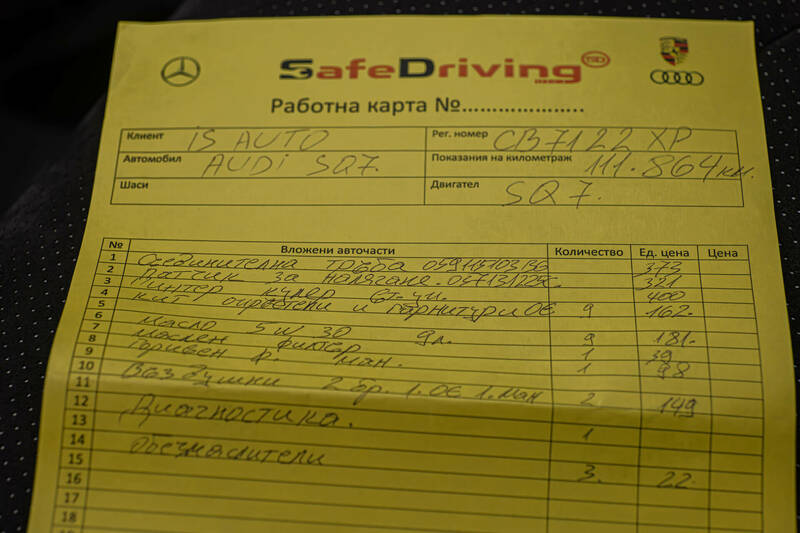 SafeDriving
Работна карта №....................
Клиент IS AUTO Рег. номер CB7122XP
Автомобил AUDI SQ7. Показания на километраж 111.864км.
Шаси Двигател SQ7.
№ Вложени авточасти Количество Ед. цена Цена
1 Съединителна тръба 373
2 Датчик за налягане. 321
3 400
4 кит и гарнитури OE 9 162.
5
6 масло 5w30 9л. 9 181.
7 маслен филтър 1 39
8 горивен ф. ман. 1 98
9
10 2 бр. 1. OE 1. ман 2 149
11
12 Диагностика. 1
13
14 обезмаслители 3. 22
15
16
17
18